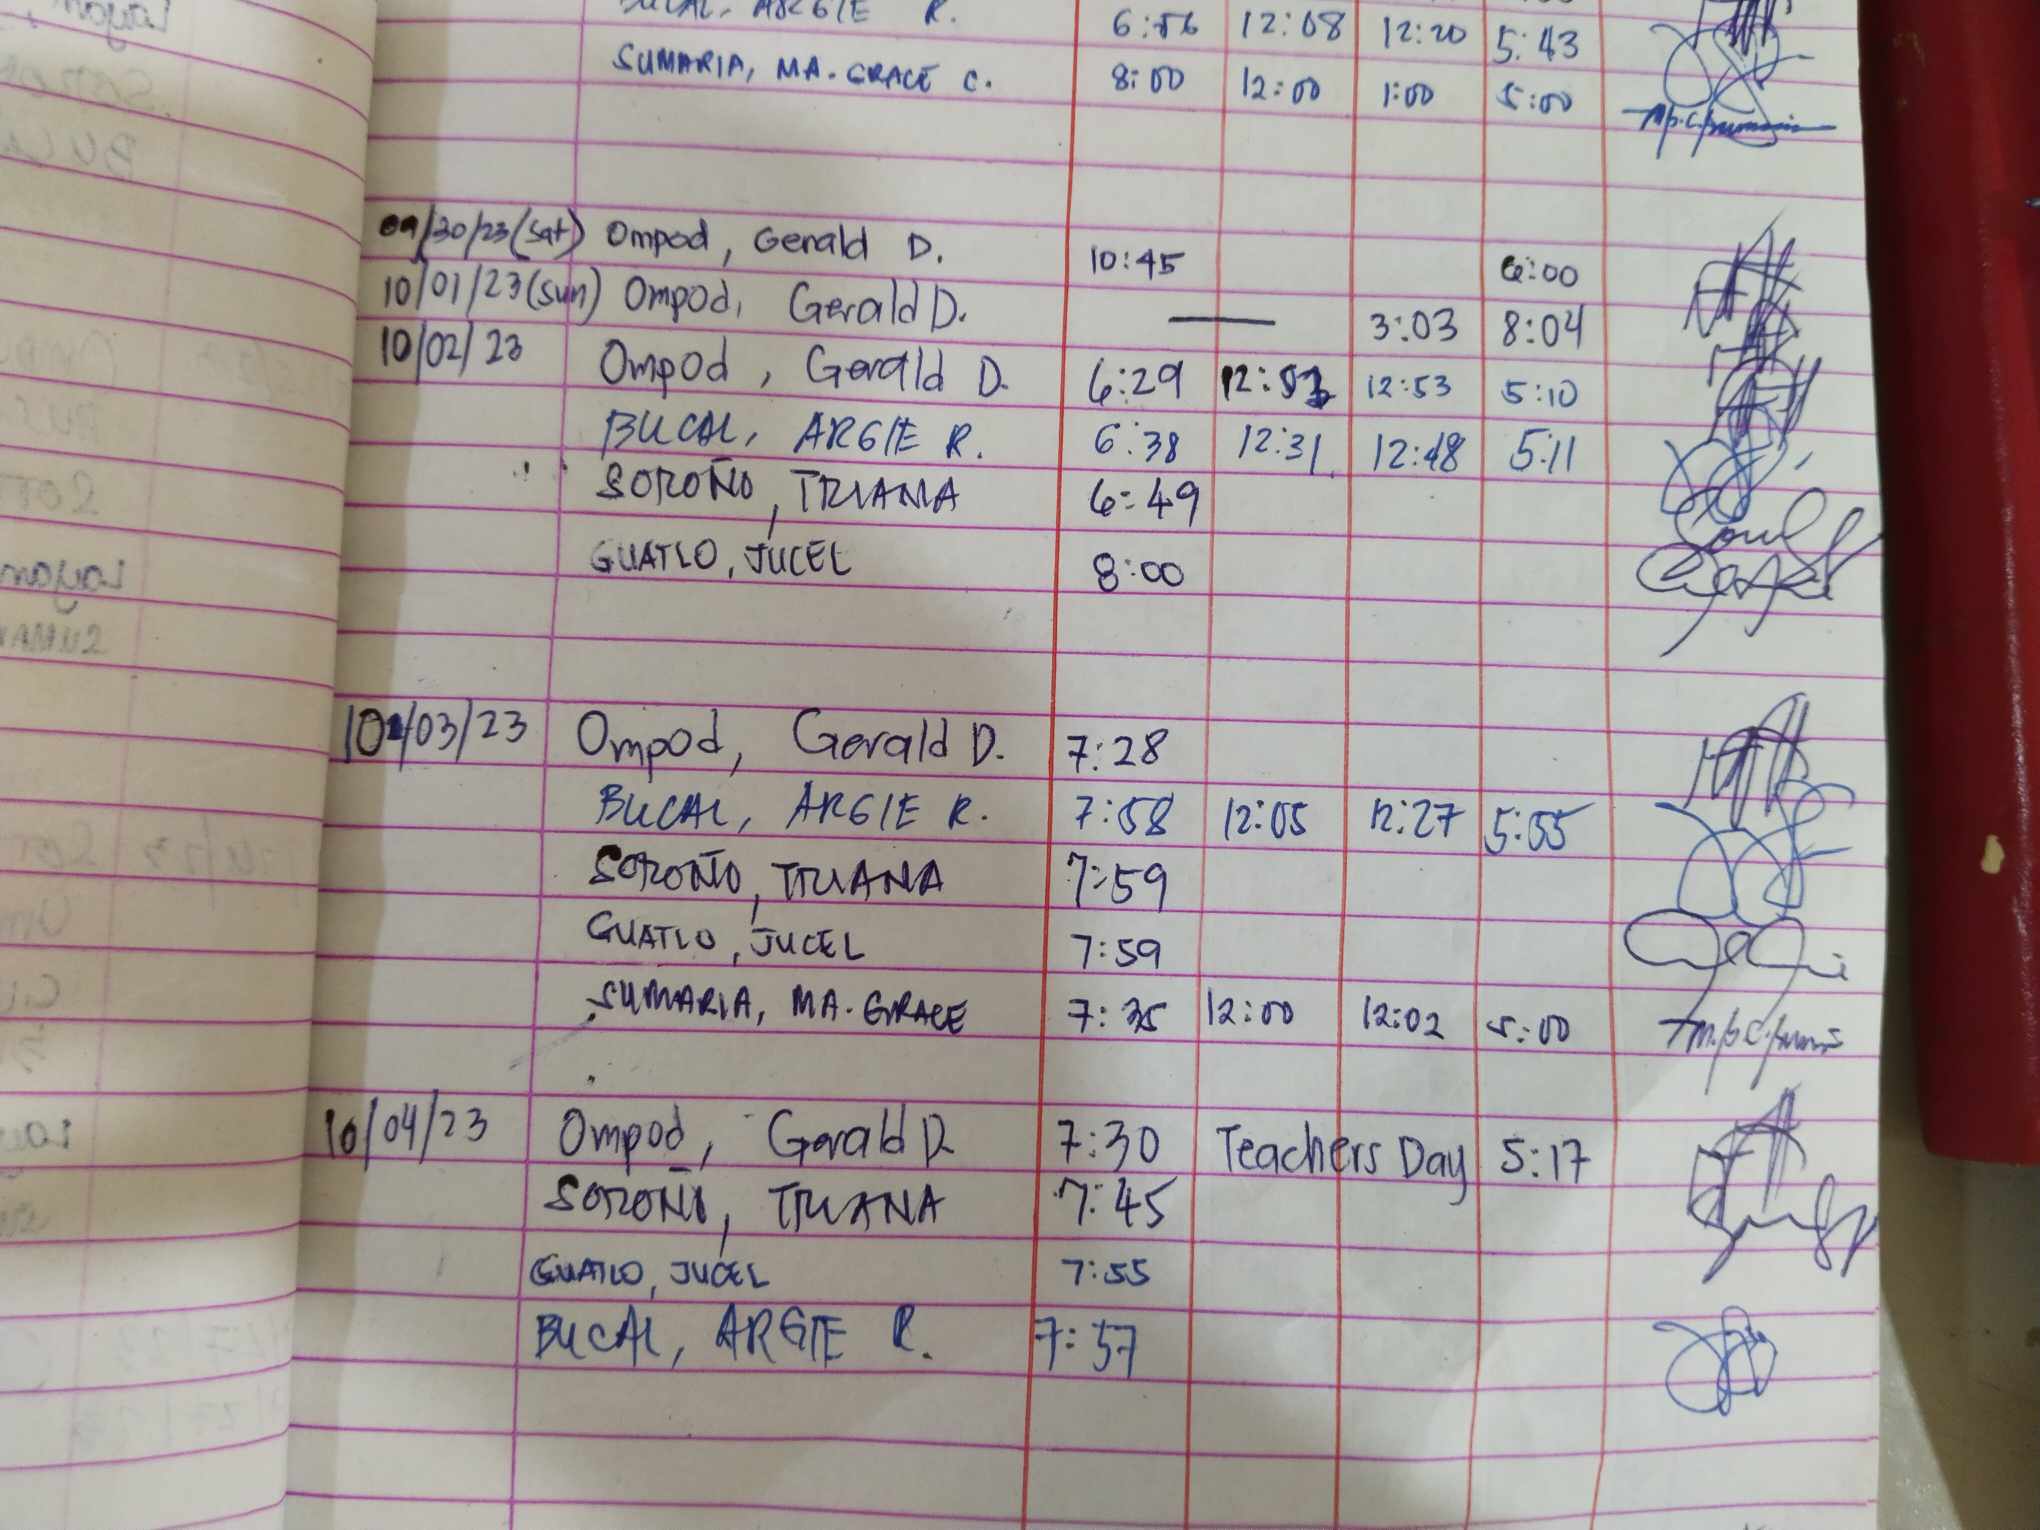 BUCAL, ARGIE R. 6:56 12:08 12:20 5:43
SUMARIA, MA. GRACE C. 8:00 12:00 1:00 5:00
09/30/23(Sat) Ompod, Gerald D. 10:45 6:00
10/01/23(Sun) Ompod, Gerald D. — 3:03 8:04
10/02/23 Ompod, Gerald D. 6:29 12:53 12:53 5:10
BUCAL, ARGIE R. 6:38 12:31 12:48 5:11
SOROÑO, TRIANA 6:49
GUATLO, JUCEL 8:00
10/03/23 Ompod, Gerald D. 7:28
BUCAL, ARGIE R. 7:58 12:05 12:27 5:55
SOROÑO, TRIANA 7:59
GUATLO, JUCEL 7:59
SUMARIA, MA. GRACE 7:35 12:00 12:02 5:00
10/04/23 Ompod, Gerald D. 7:30 Teachers Day 5:17
SOROÑO, TRIANA 7:45
GUATLO, JUCEL 7:55
BUCAL, ARGIE R. 7:57